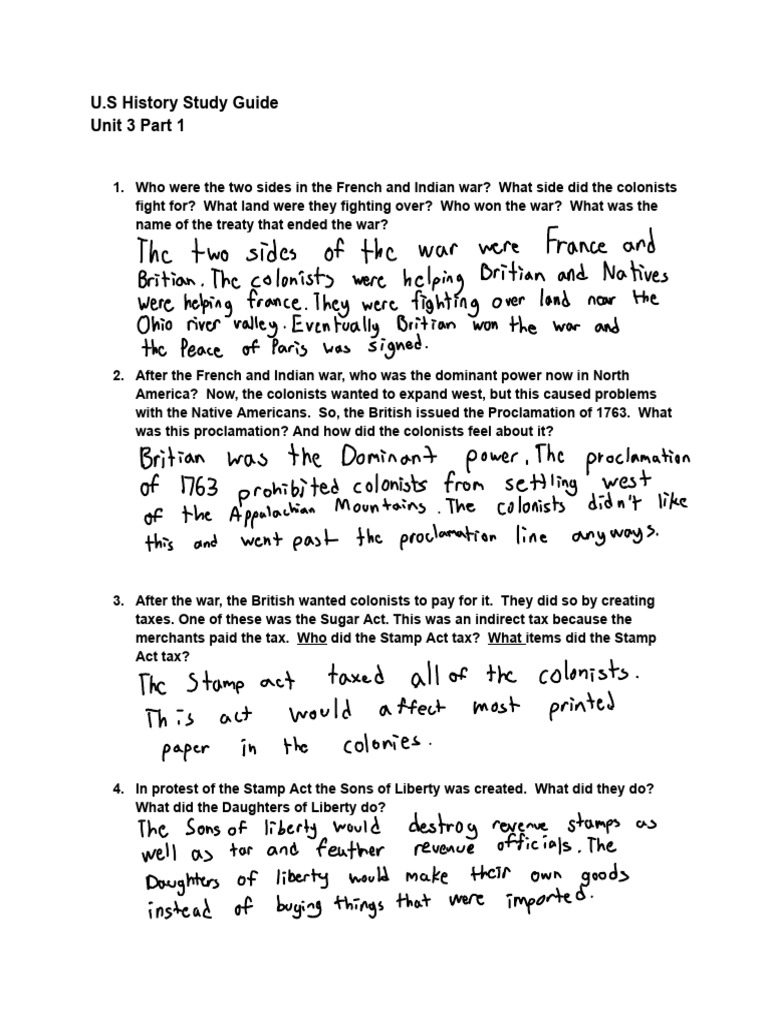 U.S History Study Guide
Unit 3 Part 1
1. Who were the two sides in the French and Indian war? What side did the colonists
fight for? What land were they fighting over? Who won the war? What was the
name of the treaty that ended the war?
The two sides of the war were France and
Britian. The colonists were helping Britian and Natives
were helping france. They were fighting over land near the
Ohio river valley. Eventually Britian won the war and
the Peace of Paris was signed.
2. After the French and Indian war, who was the dominant power now in North
America? Now, the colonists wanted to expand west, but this caused problems
with the Native Americans. So, the British issued the Proclamation of 1763. What
was this proclamation? And how did the colonists feel about it?
Britian was the Dominant power. The proclamation
of 1763 prohibited colonists from settling west
of the Appalachian Mountains. The colonists didn't like
this and went past the proclamation line anyways.
3. After the war, the British wanted colonists to pay for it. They did so by creating
taxes. One of these was the Sugar Act. This was an indirect tax because the
merchants paid the tax. Who did the Stamp Act tax? What items did the Stamp
Act tax?
The Stamp act taxed all of the colonists.
This act would affect most printed
paper in the colonies.
4. In protest of the Stamp Act the Sons of Liberty was created. What did they do?
What did the Daughters of Liberty do?
The Sons of liberty would destroy revenue stamps as
well as tar and feather revenue officials. The
Daughters of liberty would make their own goods
instead of buying things that were imported.